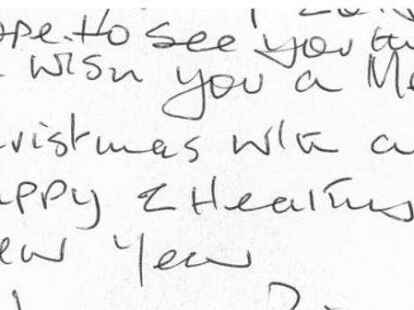 ope to see you
wish you a Me
hristmas with a
appy & Healthy
ew Year